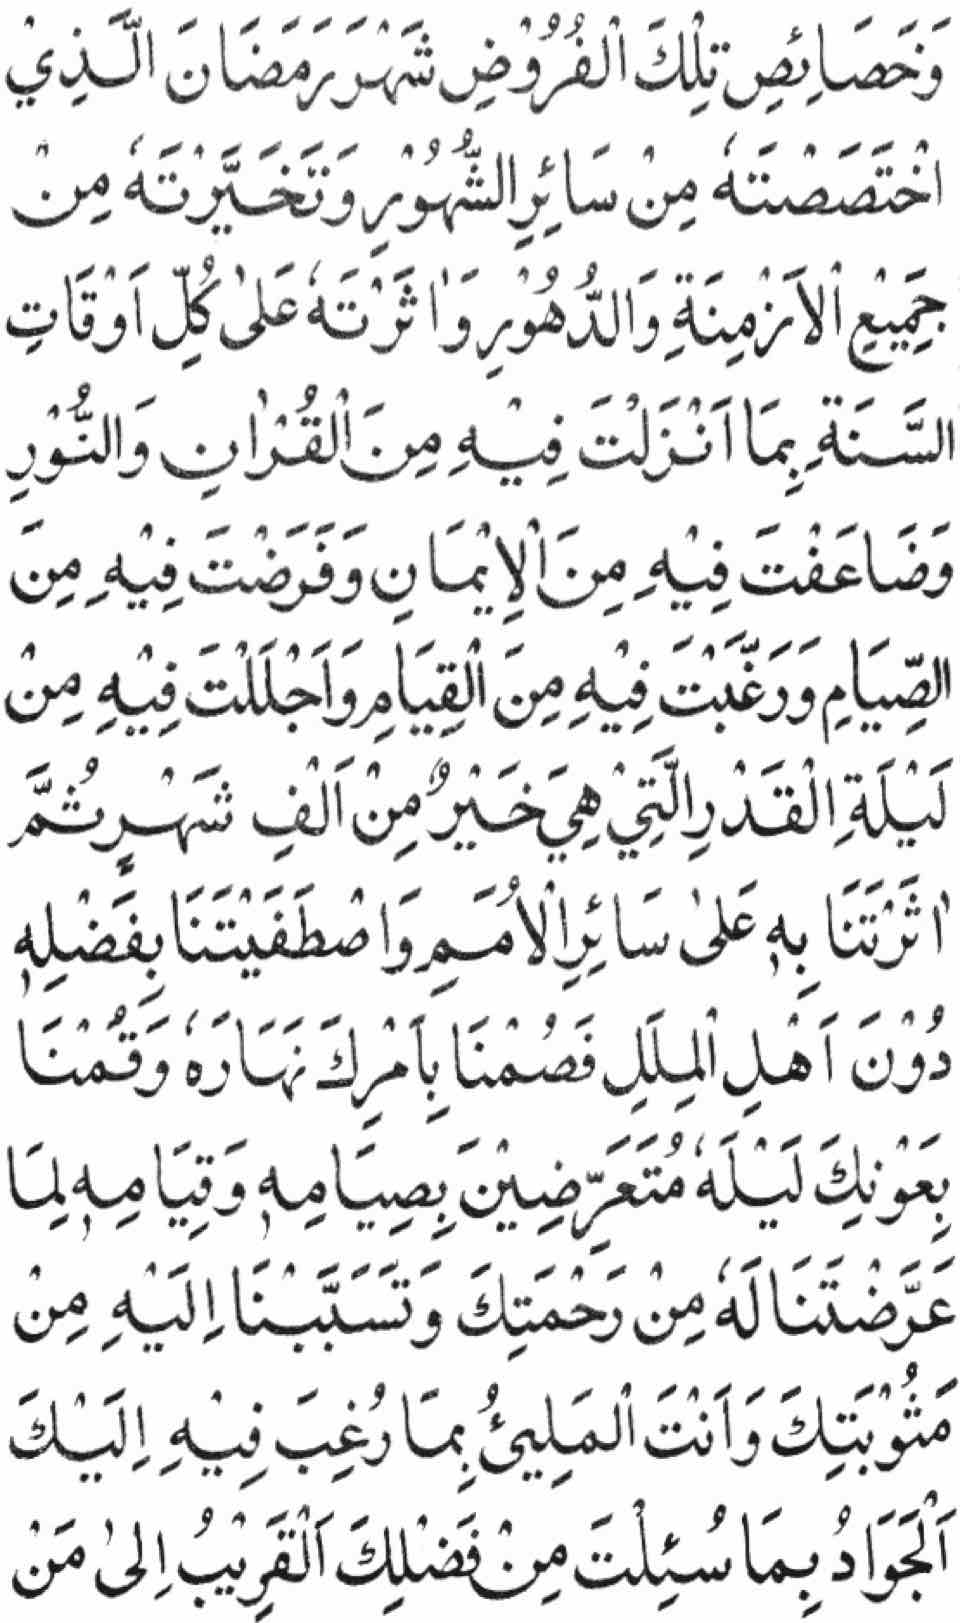 وَخَصَائِصِ تِلْكَ الْفُرُوْضِ شَهْرَ رَمَضَانَ الَّذِيْ
اخْتَصَصْتَهٗ مِنْ سَائِرِ الشُّهُوْرِ وَتَخَيَّرْتَهٗ مِنْ
جَمِيْعِ الْاَزْمِنَةِ وَالدُّهُوْرِ وَاٰثَرْتَهٗ عَلٰى كُلِّ اَوْقَاتِ
السَّنَةِ بِمَا اَنْزَلْتَ فِيْهِ مِنَ الْقُرْاٰنِ وَالنُّوْرِ
وَضَاعَفْتَ فِيْهِ مِنَ الْاِيْمَانِ وَفَرَضْتَ فِيْهِ مِنَ
الصِّيَامِ وَرَغَّبْتَ فِيْهِ مِنَ الْقِيَامِ وَاَجْلَلْتَ فِيْهِ مِنْ
لَيْلَةِ الْقَدْرِ الَّتِيْ هِيَ خَيْرٌ مِنْ اَلْفِ شَهْرٍ ثُمَّ
اٰثَرْتَنَا بِهٖ عَلٰى سَائِرِ الْاُمَمِ وَاصْطَفَيْتَنَا بِفَضْلِهٖ
دُوْنَ اَهْلِ الْمِلَلِ فَصُمْنَا بِاَمْرِكَ نَهَارَهٗ وَقُمْنَا
بِعَوْنِكَ لَيْلَهٗ مُتَعَرِّضِيْنَ بِصِيَامِهٖ وَقِيَامِهٖ لِمَا
عَرَّضْتَنَا لَهٗ مِنْ رَحْمَتِكَ وَتَسَبَّبْنَا اِلَيْهِ مِنْ
مَثُوْبَتِكَ وَاَنْتَ الْمَلِيْئُ بِمَا رُغِبَ فِيْهِ اِلَيْكَ
اَلْجَوَادُ بِمَا سُئِلْتَ مِنْ فَضْلِكَ اَلْقَرِيْبُ اِلٰى مَنْ